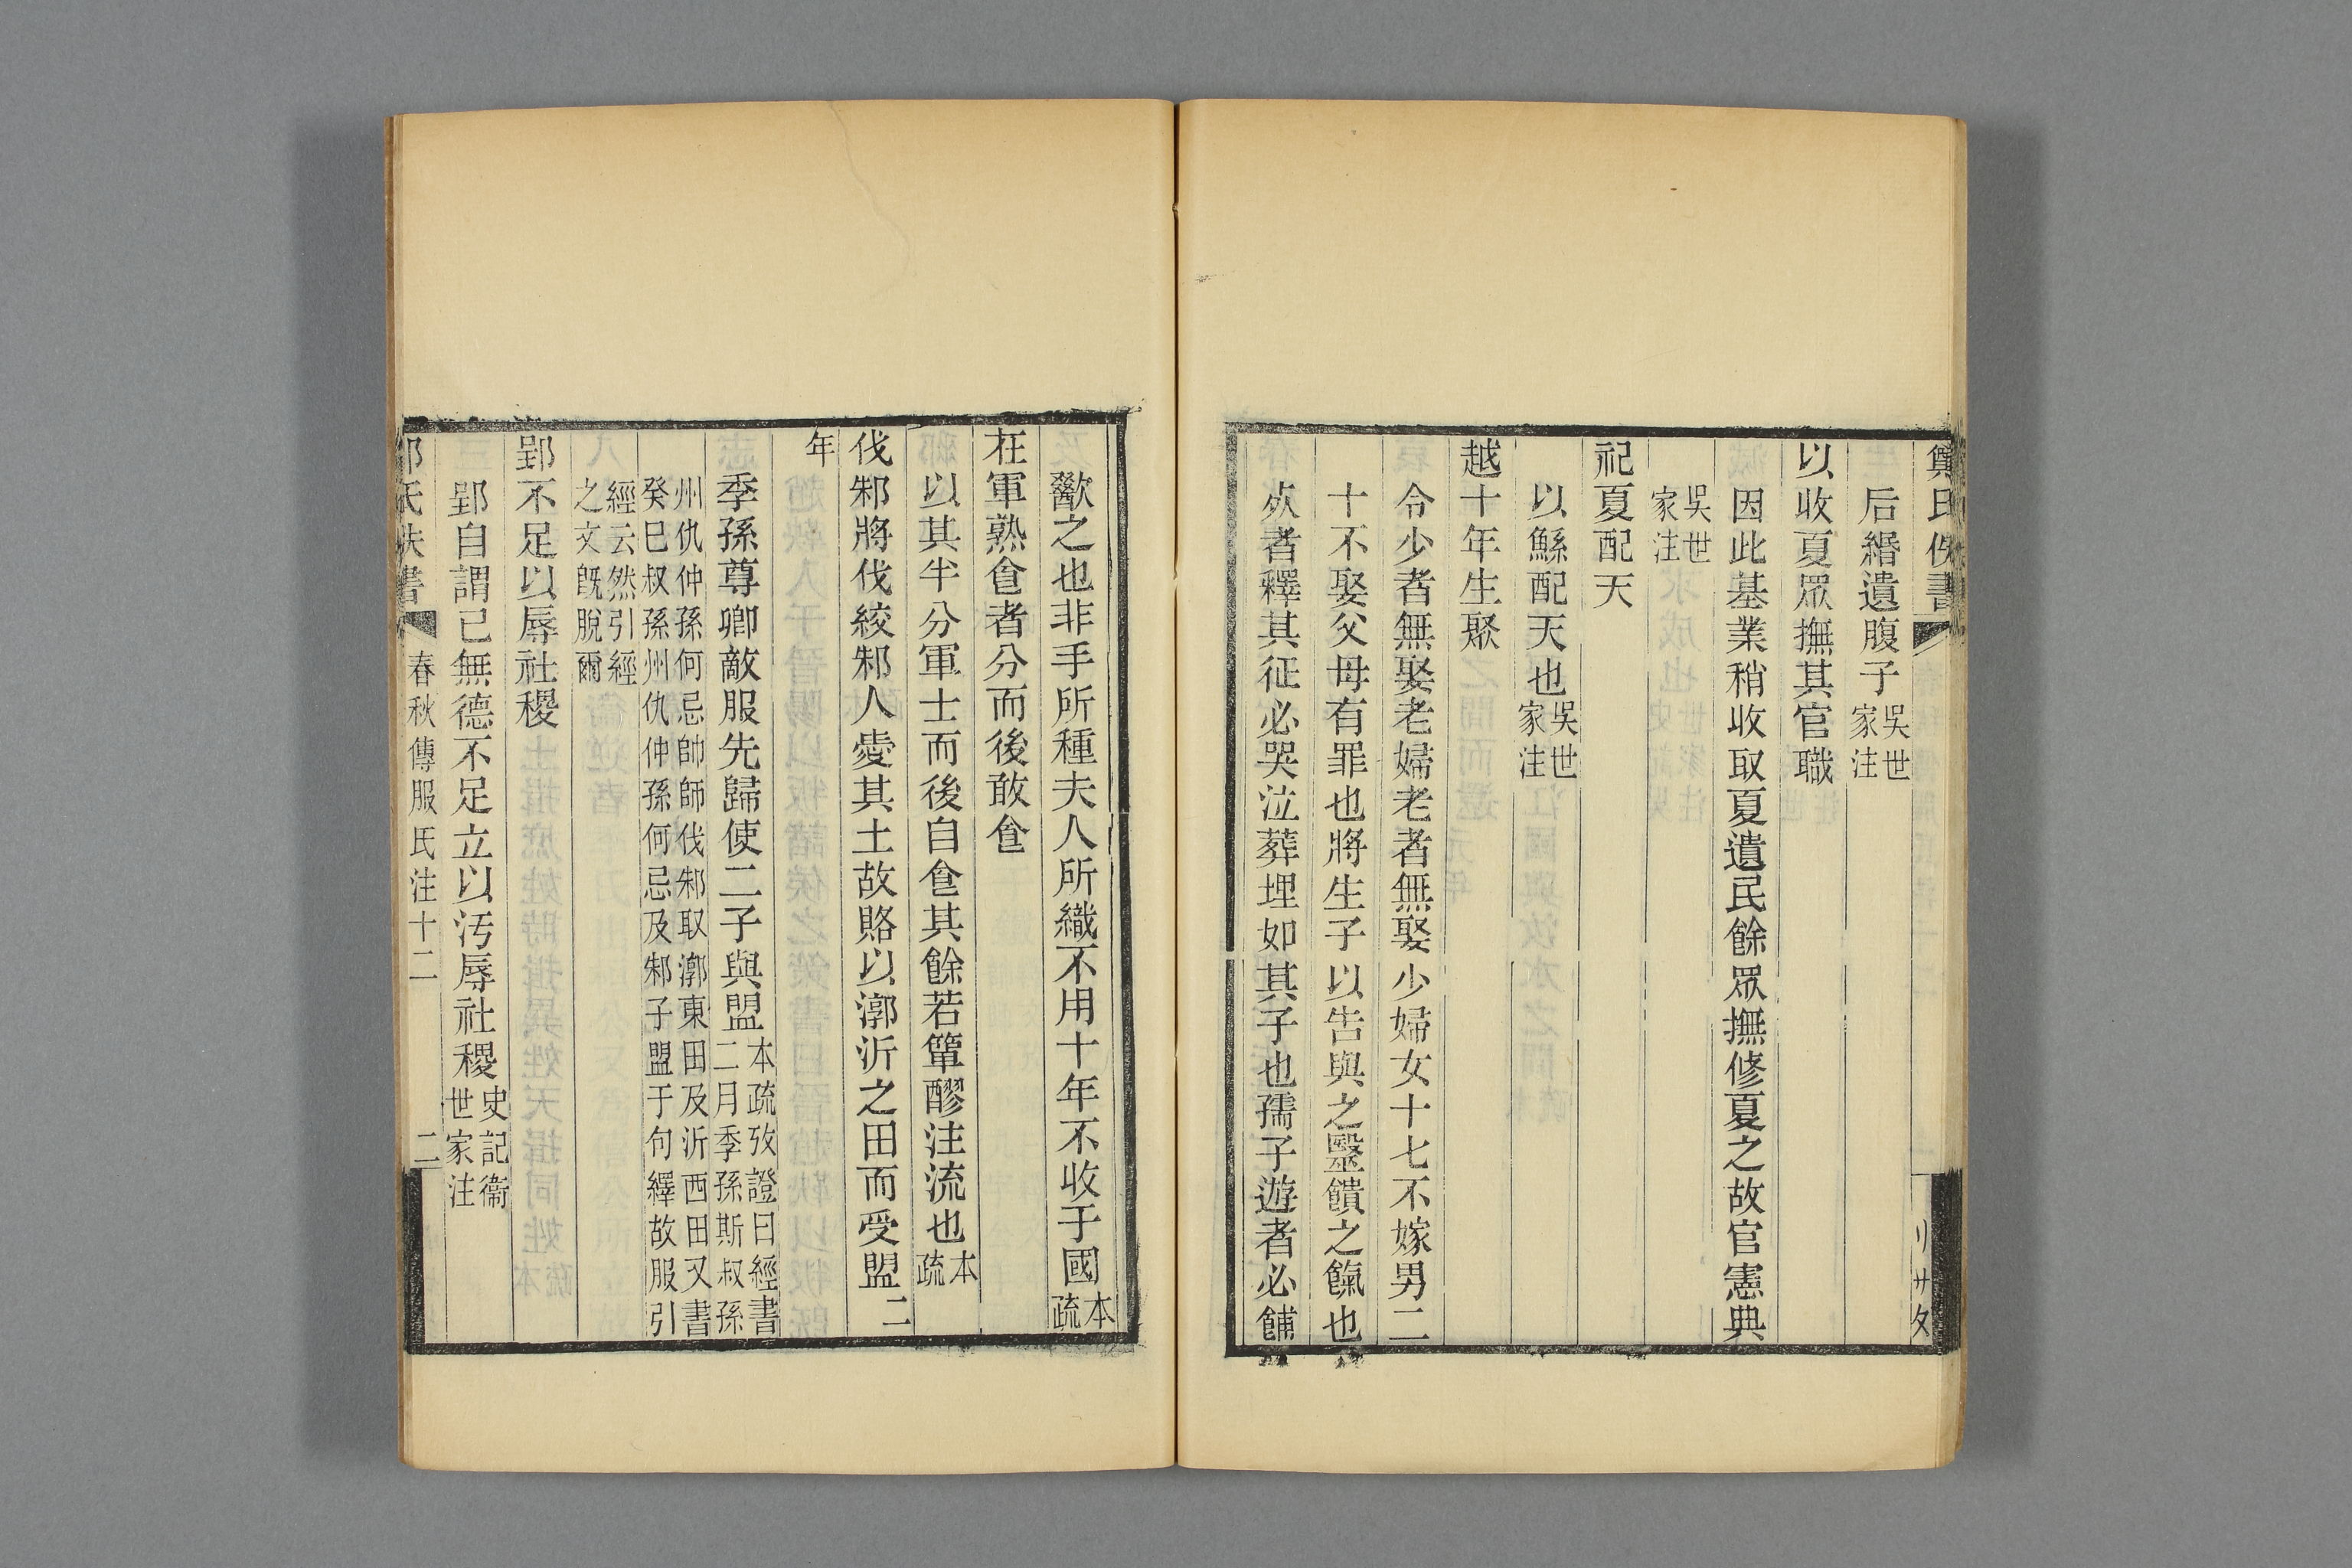 后緡遺腹子吳世家注
以收夏眾撫其官職
因此基業稍收取夏遺民餘眾撫修夏之故官憲典
吳世家注
祀夏配天
以鯀配天也吳世家注
越十年生聚
令少者無娶老婦老者無娶少婦女十七不嫁男二
十不娶父母有罪也將生子以告與之毉饋之餼也
死者釋其征必哭泣葬埋如其子也孺子遊者必餔
歠之也非手所種夫人所織不用十年不收于國本疏
在軍熟食者分而後敢食
以其半分軍士而後自食其餘若簞醪注流也本疏
伐邾將伐絞邾人愛其土故賂以漷沂之田而受盟二
年
季孫尊卿敵服先歸使二子與盟本疏攷證曰經書
二月季孫斯叔孫
州仇仲孫何忌帥師伐邾取漷東田及沂西田又書
癸巳叔孫州仇仲孫何忌及邾子盟于句繹故服引
經云然引經
之文旣脫爾
郢不足以辱社稷
郢自謂己無德不足立以汚辱社稷史記衞世家注
春秋傳服氏注十二
二